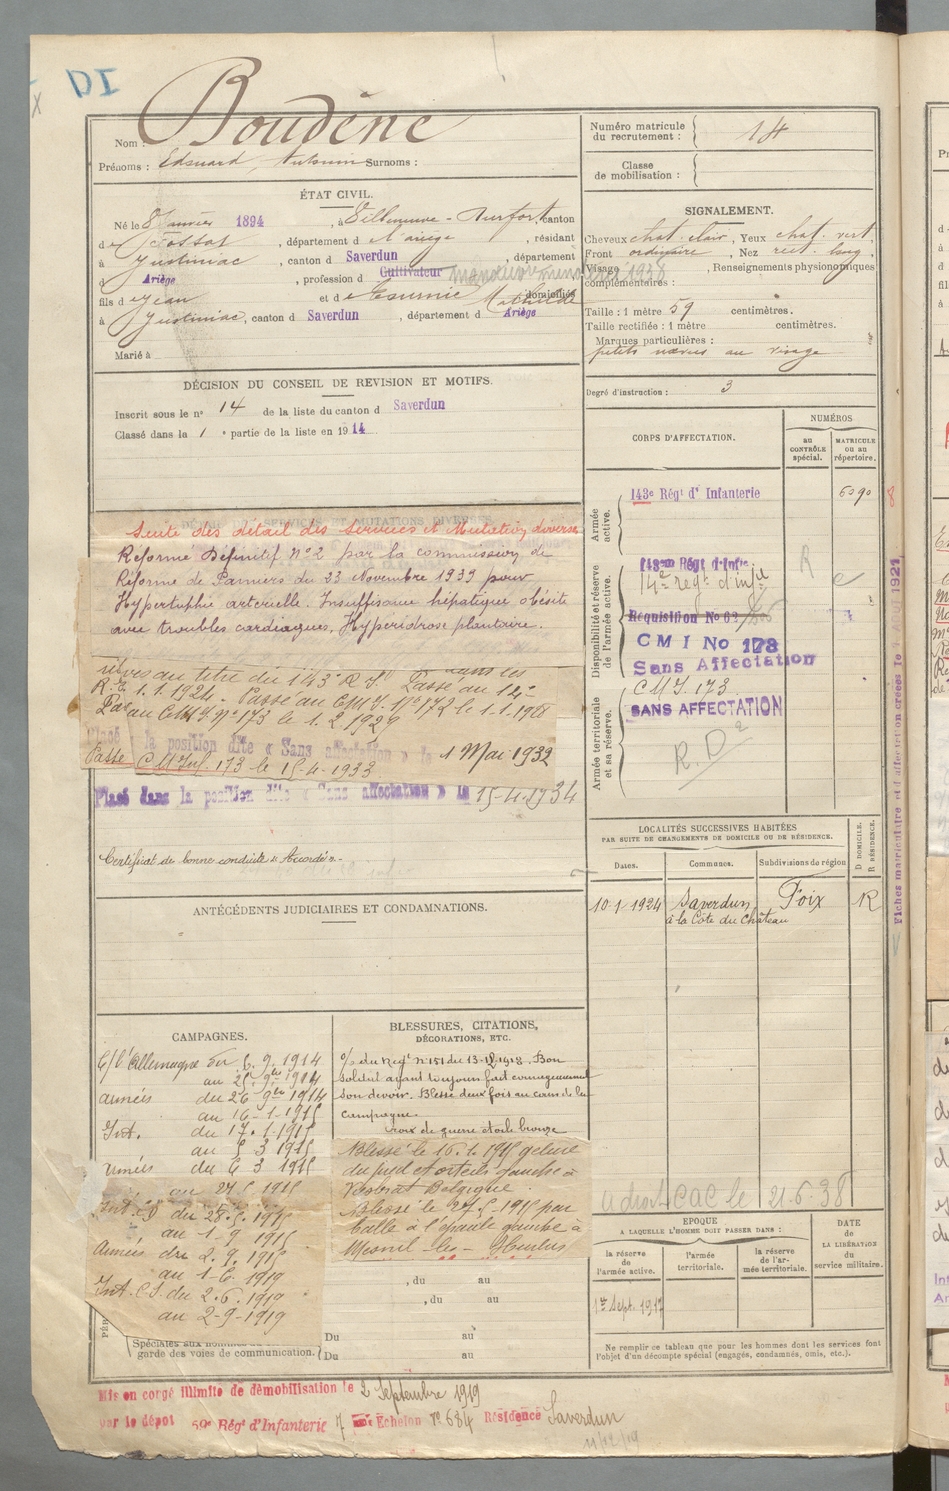 DI
Nom : Boudène
Prénoms : Edouard, Antonin Surnoms :
ÉTAT CIVIL.
Né le 8 Janvier 1894, à Villeneuve-Durfort, canton
de Fossat, département d l'Ariège, résidant
à Justiniac, canton d Saverdun, département
d Ariège, profession d Cultivateur
fils de Jean et de domiciliés
à Justiniac, canton d Saverdun, département d Ariège
Marié à
DÉCISION DU CONSEIL DE REVISION ET MOTIFS.
Inscrit sous le n° 14 de la liste du canton d Saverdun
Classé dans la 1e partie de la liste en 1914
Suite des détail des Services et Mutation diverses
Réformé Définitif N°2 par la commission de
Réforme de Pamiers du 23 Novembre 1939 pour
Hypertuphie arterielle. Insuffisance hépatique obésité
avec troubles cardiaques. Hyperidrose plantaire.
au titre du 143e R.I. Passé au 14e
R.I. 1.1.1924. Passé au CMI n° 172 le 1.1.1928
Pas au CMI n° 173 le 1.2.1929
Placé la position dite « Sans affectation » le 1 Mai 1932
Passé C M Inf. 173 le 15-4-1933
Placé dans la position dite « Sans affectation » le 15-4-1934
Certificat de bonne conduite « Accordé »
ANTÉCÉDENTS JUDICIAIRES ET CONDAMNATIONS.
CAMPAGNES.
C/ l'Allemagne du 6.9.1914
au 25.9bre 1914
armées du 26 9bre 1914
au 16-1-1915
Int. du 17.1-1915
au 5 3 1915
Armées du 6 3 1915
au 27 5 1915
Int. C.S du 28.5.1915
au 1-9 1915
Armées du 2.9.1915
au 1-6.1919
Int. C.S. du 2.6.1919
au 2-9-1919
Spéciales aux hommes du
garde des voies de communication.
BLESSURES, CITATIONS,
DÉCORATIONS, ETC.
O/ du Régt n° 151 du 13-12-1918. Bon
soldat ayant toujours fait courageusement
son devoir. Blessé deux fois au cours de la
campagne
Croix de guerre étoile bronze
Blessé le 16.1.1915 gelure
du pied et orteils gauche à
Belgique
Blessé le 27-5-1915 par
balle à l'épaule gauche à
Mesnil-les-Hurlus
, du au
, du au
Du au
Du au
Mis en congé illimité de démobilisation le 2 Septembre 1919
par le dépôt 59e Régt d'Infanterie 7 Echelon N° 684 Résidence Saverdun
11/12/19
Numéro matricule
du recrutement : 14
Classe
de mobilisation :
SIGNALEMENT.
Cheveux chat. clair, Yeux chat. vert,
Front ordinaire, Nez rect. long,
Visage, Renseignements physionomiques
complémentaires :
Taille : 1 mètre 59 centimètres.
Taille rectifiée : 1 mètre centimètres.
Marques particulières :
petits naevus au visage
Degré d'instruction : 3
CORPS D'AFFECTATION.
NUMÉROS
au CONTRÔLE spécial.
MATRICULE ou au répertoire.
Armée active.
143e Régt d'Infanterie 6090
Disponibilité et réserve de l'armée active.
143me Régt d'Infie
14e regt d'infie
Réquisition No 62
CMI No 173
Sans Affectation
Armée territoriale et sa réserve.
C M I. 173
SANS AFFECTATION
R. D2
LOCALITÉS SUCCESSIVES HABITÉES
PAR SUITE DE CHANGEMENTS DE DOMICILE OU DE RÉSIDENCE.
Dates. Communes. Subdivisions de région D DOMICILE. R RÉSIDENCE.
10-1-1924 Saverdun Foix R
à la Côte du Château
a droit CAC le 21-6-38
EPOQUE
A LAQUELLE L'HOMME DOIT PASSER DANS :
la réserve de l'armée active.
l'armée territoriale.
la réserve de l'armée territoriale.
DATE DE LA LIBÉRATION du service militaire.
1er Sept. 1917
Ne remplir ce tableau que pour les hommes dont les services font
l'objet d'un décompte spécial (engagés, condamnés, omis, etc.).